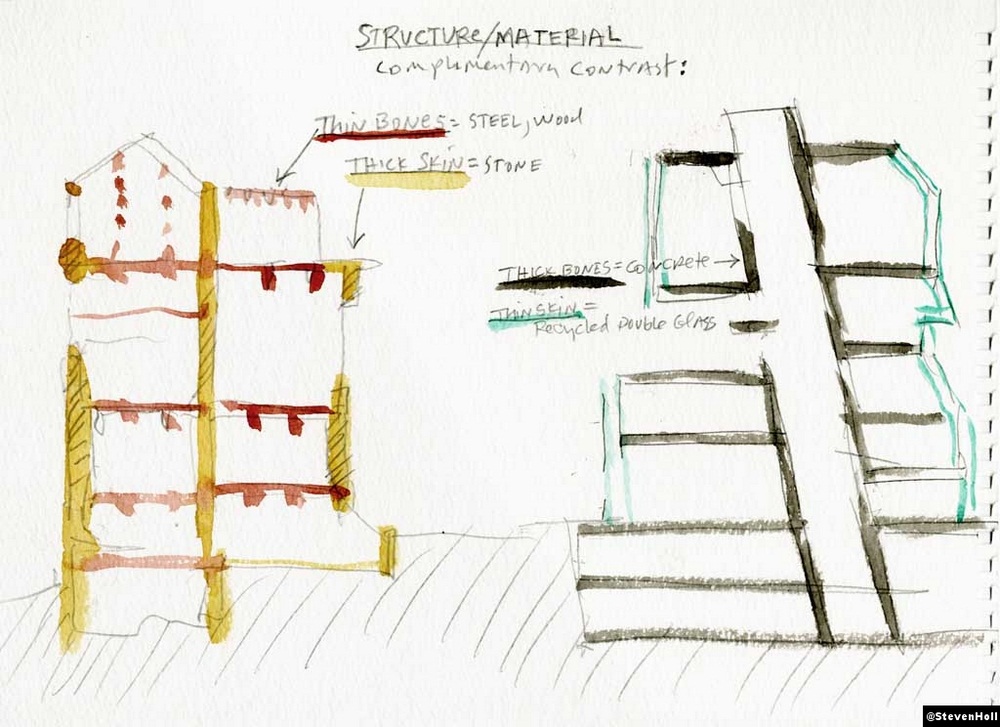 STRUCTURE/MATERIAL
Complementary Contrast:
THIN BONES = STEEL, Wood
THICK SKIN = STONE
THICK BONES = CONCRETE →
THIN SKIN =
Recycled Double Glass
@StevenHoll